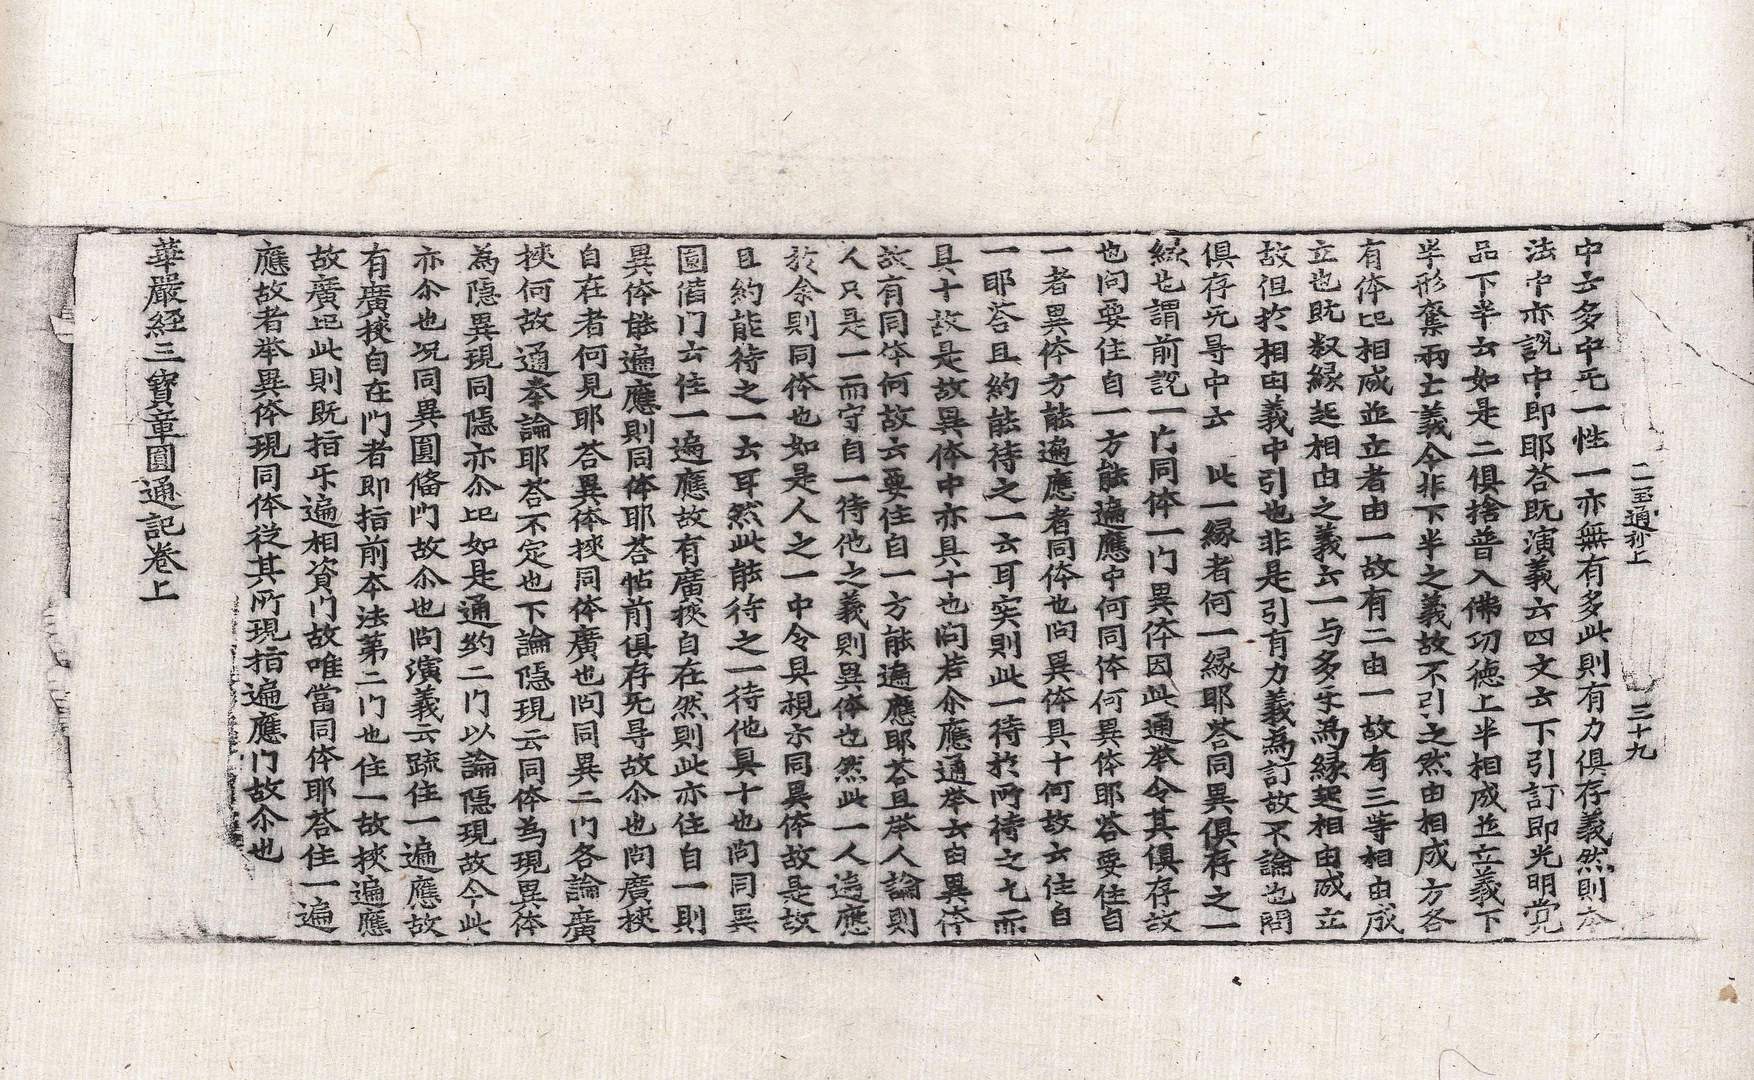 二玉通抄上　三十九
中云多中无一性一亦無有多此則有力俱存義然則本
法中亦說中即耶荅既演義云四文云下引訂即光明党
品下半云如是二俱捨普入佛功徳上半相成並立義下
半形奪兩亡義今非下半之義故不引之然由相成方各
有体比相成並立者由一故有二由一故有三等相由成
立也既叙縁起相由之義云一与多乎為縁起相由成立
故但於相由義中引也非是引有力義為訂故不論也問
俱存无㝵中云 此一縁者何一縁耶荅同異俱存之一
縁也謂前說一門同体一門異体因此通举令其俱存故
也問要住自一方能遍應中何同体何異体耶荅要住自
一者異体方能遍應者同体也問異体具十何故云住自
一耶荅且約能待之一云耳实則此一待於所待之七而
具十故是故異体中亦具十也問若尒應通举云由異体
故有同体何故云要住自一方能遍應耶荅且举人論則
人只是一而守自一待他之義則異体也然此一人遠應
於余則同体也如是人之一中令具視亦同異体故是故
且約能待之一云耳然此能待之一待他具十也問同異
圓偹门云住一遍應故有廣挾自在然則此亦住自一則
異体能遍應則同体耶荅帖前俱存无㝵故尒也問廣挾
自在者何見耶荅異体挾同体廣也問同異二门各論廣
挾何故通奉論耶荅不定也下論隱現云同体為現異体
為隱異現同隱亦尒比如是通約二门以論隱現故今此
亦尒也况同異圓偹门故尒也問演義云疏住一遍應故
有廣挾自在门者即指前本法第二门也住一故挾遍應
故廣比此則既指乎遍相資门故唯當同体耶荅住一遍
應故者举異体現同体従其所現指遍應门故尒也
華嚴経三寶章圓通記卷上